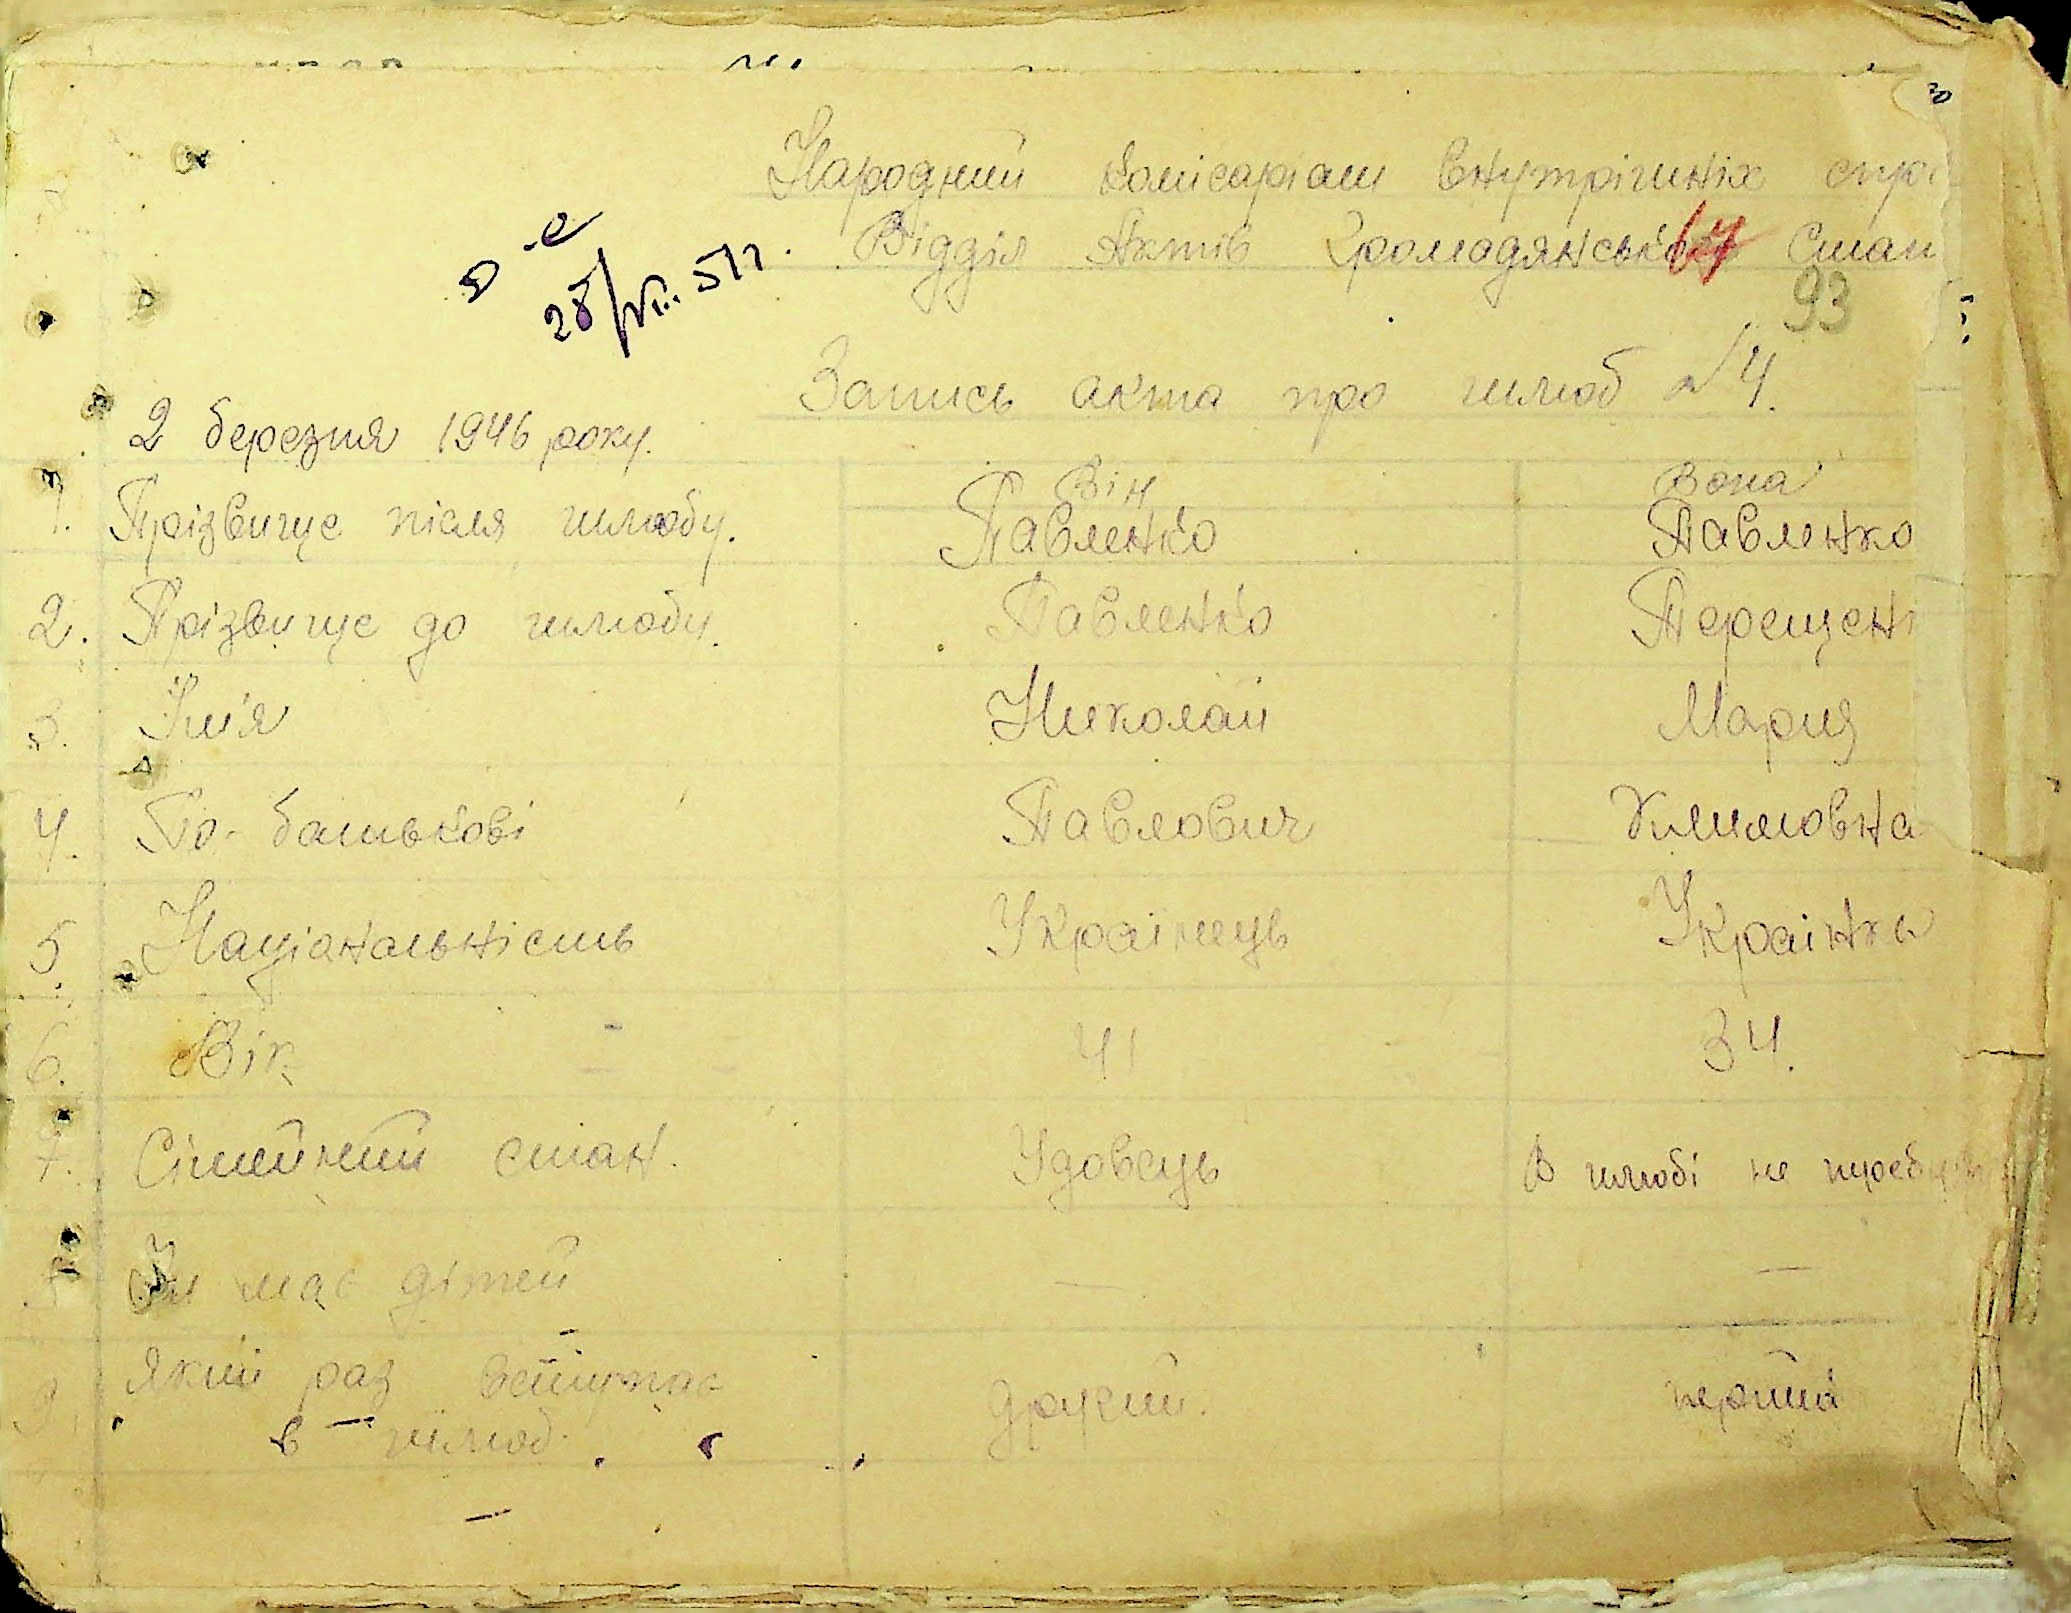 Народний Комісаріат Внутрішніх спра
Відділ Актів Громадянської Стан
64
93
28/VIII 51г.
Запись акта про шлюб №4.
2 березня 1946 року.
Він Вона
1. Прізвище після шлюбу. Павленко Павленко
2. Прізвище до шлюбу. Павленко Терещен
3. Ім'я Николай Мария
4. По-батькові Павлович Климовна
5. Націанальність Українець Українка
6. Вік 41 34.
7. Сімейний стан. Удовець В шлюбі не
8. Чи має дітей — —
9. Який раз вступає другий. перший
в шлюб.